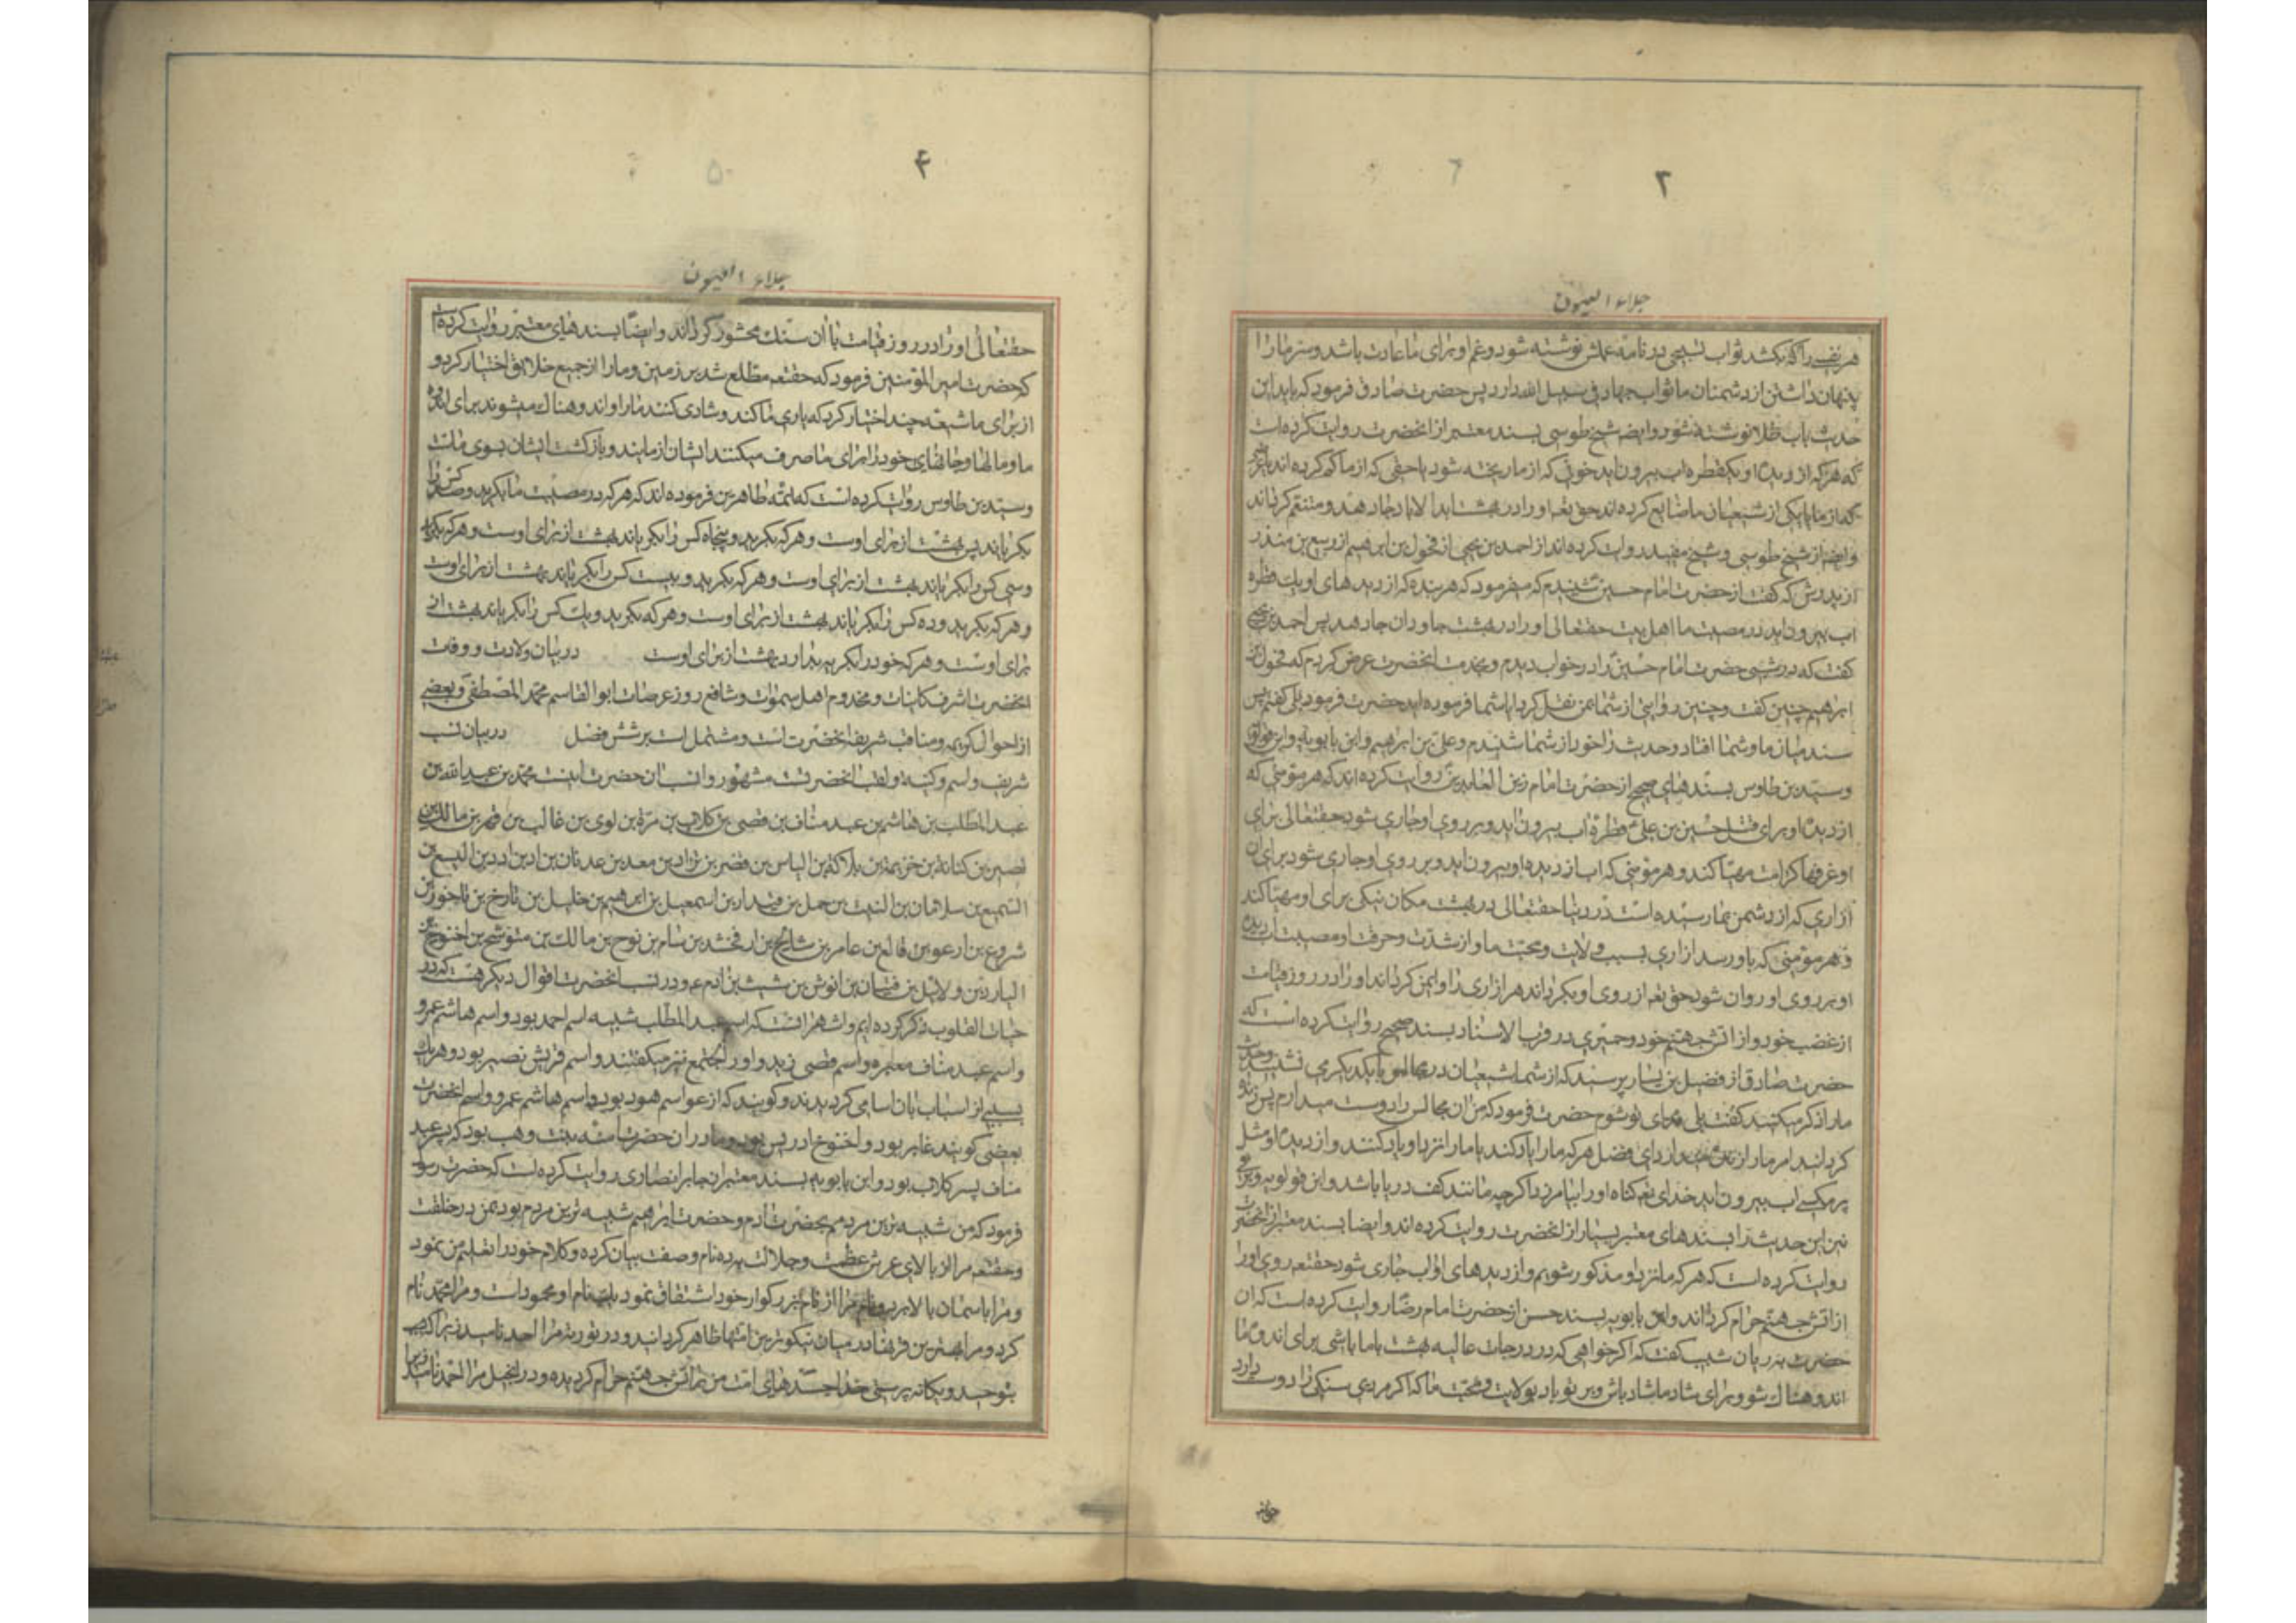 ۳
جلاء العیون
هر نفس را که بکشد ثواب تسبیحی در نامهٔ عملش نوشته شود و غم او برای ما عبادت باشد و سر ما را
پنهان داشتن از دشمنان ما ثواب جهاد فی سبیل الله دارد پس حضرت صادق فرمود که باید این
حدیث باب طلا نوشته شود و ایضا شیخ طوسی بسند معتبر از انحضرت روایت کرده است
که هر که از دیدهٔ او یکقطره اب بیرون اید خونی که از ما ریخته شود یا حقی که از ما کم کرده اند یا عرضی
که از ما یا یکی از شیعیان ما ضایع کرده اند حق تعه او را در بهشت ابدا لاباد جا دهد و متنعم کرداند
و ایضا از شیخ طوسی و شیخ مفید روایت کرده اند از احمد بن یحیی از مخول بن ابرهیم از ربیع بن منذر
از پدرش که گفت از حضرت امام حسین شنیدم که میفرمود که هر بنده که از دیدهای او یک قطره
اب بیرون اید در مصیبت ما اهل بیت حقتعالی او را در بهشت جاودان جا دهد پس احمد بن یحیی
کفت که در شبی حضرت امام حسین را در خواب دیدم و بخدمت انحضرت عرض کردم که مخول بن
ابرهیم چنین کفت و چنین روایتی از شما بمن نقل کرد ایا شما فرموده اید حضرت فرمود بلی کفتم پس
سند میان ما و شما افتاد و حدیث را خود از شما شنیدم و علی بن ابرهیم و ابن بابویه و ابن قولویه
و سید بن طاوس بسندهای صحیح از حضرت امام زین العابدین روایت کرده اند که هر مؤمنی که
از دیدهٔ او برای قتل حسین بن علی قطرهٔ اب بیرون اید و بر روی او جاری شود حقتعالی برای
او غرفها کرامت مهیا کند و هر مؤمنی که اب از دیده او بیرون اید و بر روی او جاری شود برای ان
ازاری که از دشمن بما رسیده است در دنیا حقتعالی در بهشت مکان نیکی برای او مهیا کند
و هر مؤمنی که باو رسد ازاری بسبب ولایت و محبت ما و از شدت و حرقت او مصیبت اب دیده
او بر روی او روان شود حق تعه از روی او بکرداند هر ازاری را و ایمن کرداند او را در روز قیامت
از غضب خود و از اتش جهنم خود و حمیری در قرب الاسناد بسند صحیح روایت کرده است که
حضرت صادق از فضیل بن یسار پرسید که از شما شیعیان در مجالس با یکدیکر می نشینید و حدیث
ما را ذکر میکنید کفت بلی فدای تو شوم حضرت فرمود که من ان مجالس را دوست میدارم پس زنده
کردانید امر ما را ای فضل هر که ما را یاد کند یا ما را نزد او یاد کنند و از دیدهٔ او مثل
پر مکسی اب بیرون اید خدای تعه کناه او را بیامرزد اکرچه مانند کف دریا باشد و ابن قولویه و برقی
نیز این حدیث را بسندهای معتبر بسیار از انحضرت روایت کرده اند و ایضا بسند معتبر از انحضرت
روایت کرده است که هر که ما نزد او مذکور شویم و از دیدهای او اب جاری شود حقتعه روی او را
از اتش جهنم حرام کرداند و ابن بابویه بسند حسن از حضرت امام رضا روایت کرده است که ان
حضرت به ریان شبیب کفت که اکر خواهی که در درجات عالیه بهشت با ما باشی برای اندوه ما
اندوهناک شو و برای شاد ما شاد باش و بر تو باد بولایت و محبت ما که اکر مردی سنکی را دوست دارد
۴
جلاء العیون
حقتعالی او را در روز قیامت با ان سنک محشور کرداند و ایضا بسندهای معتبر روایت کرده اند
که حضرت امیر المؤمنین فرمود که حقتعه مطلع شد بر زمین و ما را از جمیع خلایق اختیار کرد و
از برای ما شیعه چند اختیار کرد که یاری ما کنند و شادی کنند ما را و اندوهناک میشوند برای اندوه
ما و مالها و جانهای خود را برای ما صرف میکنند ایشان از مایند و بازکشت ایشان بسوی ماست
و سید بن طاوس روایت کرده است که ائمه طاهرین فرموده اند که هر که در مصیبت ما بکرید و صد کس را
بکریاند پس بهشت از برای اوست و هر که بکرید و پنجاه کس را بکریاند بهشت از برای اوست و هر که بکرید
و سی کس را بکریاند بهشت از برای اوست و هر که بکرید و بیست کس را بکریاند بهشت از برای اوست
و هر که بکرید و ده کس را بکریاند بهشت از برای اوست و هر که بکرید و یک کس را بکریاند بهشت از
برای اوست و هر که خود را بکریه بدارد بهشت از برای اوست در بیان ولادت و وفات
انحضرت اشرف کاینات و مخدوم اهل سموات و شافع روز عرصات ابو القاسم محمد المصطفی و بعضی
از احوال کریمه و مناقب شریفه انحضرت است و مشتمل است بر شش فصل در بیان نسب
شریف و اسم و کنیه و لقب انحضرت مشهور و انساب ان حضرت اینست محمد بن عبد الله بن
عبد المطلب بن هاشم بن عبد مناف بن قصی بن کلاب بن مرة بن لوی بن غالب بن فهر بن مالک بن
نصیر بن کنانة بن خزیمة بن مدرکة بن الیاس بن مضر بن نزار بن معد بن عدنان بن اد بن ادد بن الیسع بن
الهمیسع بن سلامان بن النبت بن حمل بن قیدار بن اسمعیل بن ابرهیم بن خلیل بن تارخ بن ناخور بن
شروع بن ارعو بن فالع بن عامر بن شالخ بن ارفخشد بن سام بن نوح بن مالک بن متوشح بن اخنوخ بن
البارد بن مهلائیل بن قینان بن انوش بن شیث بن ادم ع و در نسب انحضرت اقوال دیکر هست که در
حیات القلوب ذکر کرده ایم و اشهر انست که اسم عبد المطلب شیبه اسم احمد بود و اسم هاشم عمرو
و اسم عبد مناف مغیره و اسم قصی زید و او را مجتمع نیز میکفتند و اسم قریش نصیر بود و هر یک
بسببی از اسباب بان اسامی کردیدند و کویند که از عو اسم هود بود و اسم هاشم عمرو و اسم انحضرت
بعضی کویند غابر بود و اخنوخ ادریس بود و مادر ان حضرت امنه بنت وهب بود که پسر عبد
مناف پسر کلاب بود و ابن بابویه بسند معتبر از جابر انصاری روایت کرده است که حضرت رسول
فرمود که من شبیه ترین مردمم بحضرت ادم و حضرت ابرهیم شبیه ترین مردم بود بمن در خلقت
و حقتعه مرا از بالای عرش عظمت و جلالت به ده نام وصف بیان کرده و کلام خود را تعلیم من نمود
و مرا باسمان بالا برد و نام مرا از نام بزرکوار خود اشتقاق نمود یک نام او محمود است و مرا محمد نام
کرد و مرا بهترین قرنها در میان نیکوترین امتها ظاهر کردانید و در توریت مرا احید نامید زیرا که
بتوحید و یکانه پرستی خدا جسدهای امت من بر اتش جهنم حرام کردیده و در انجیل مرا احمد نامید زیرا